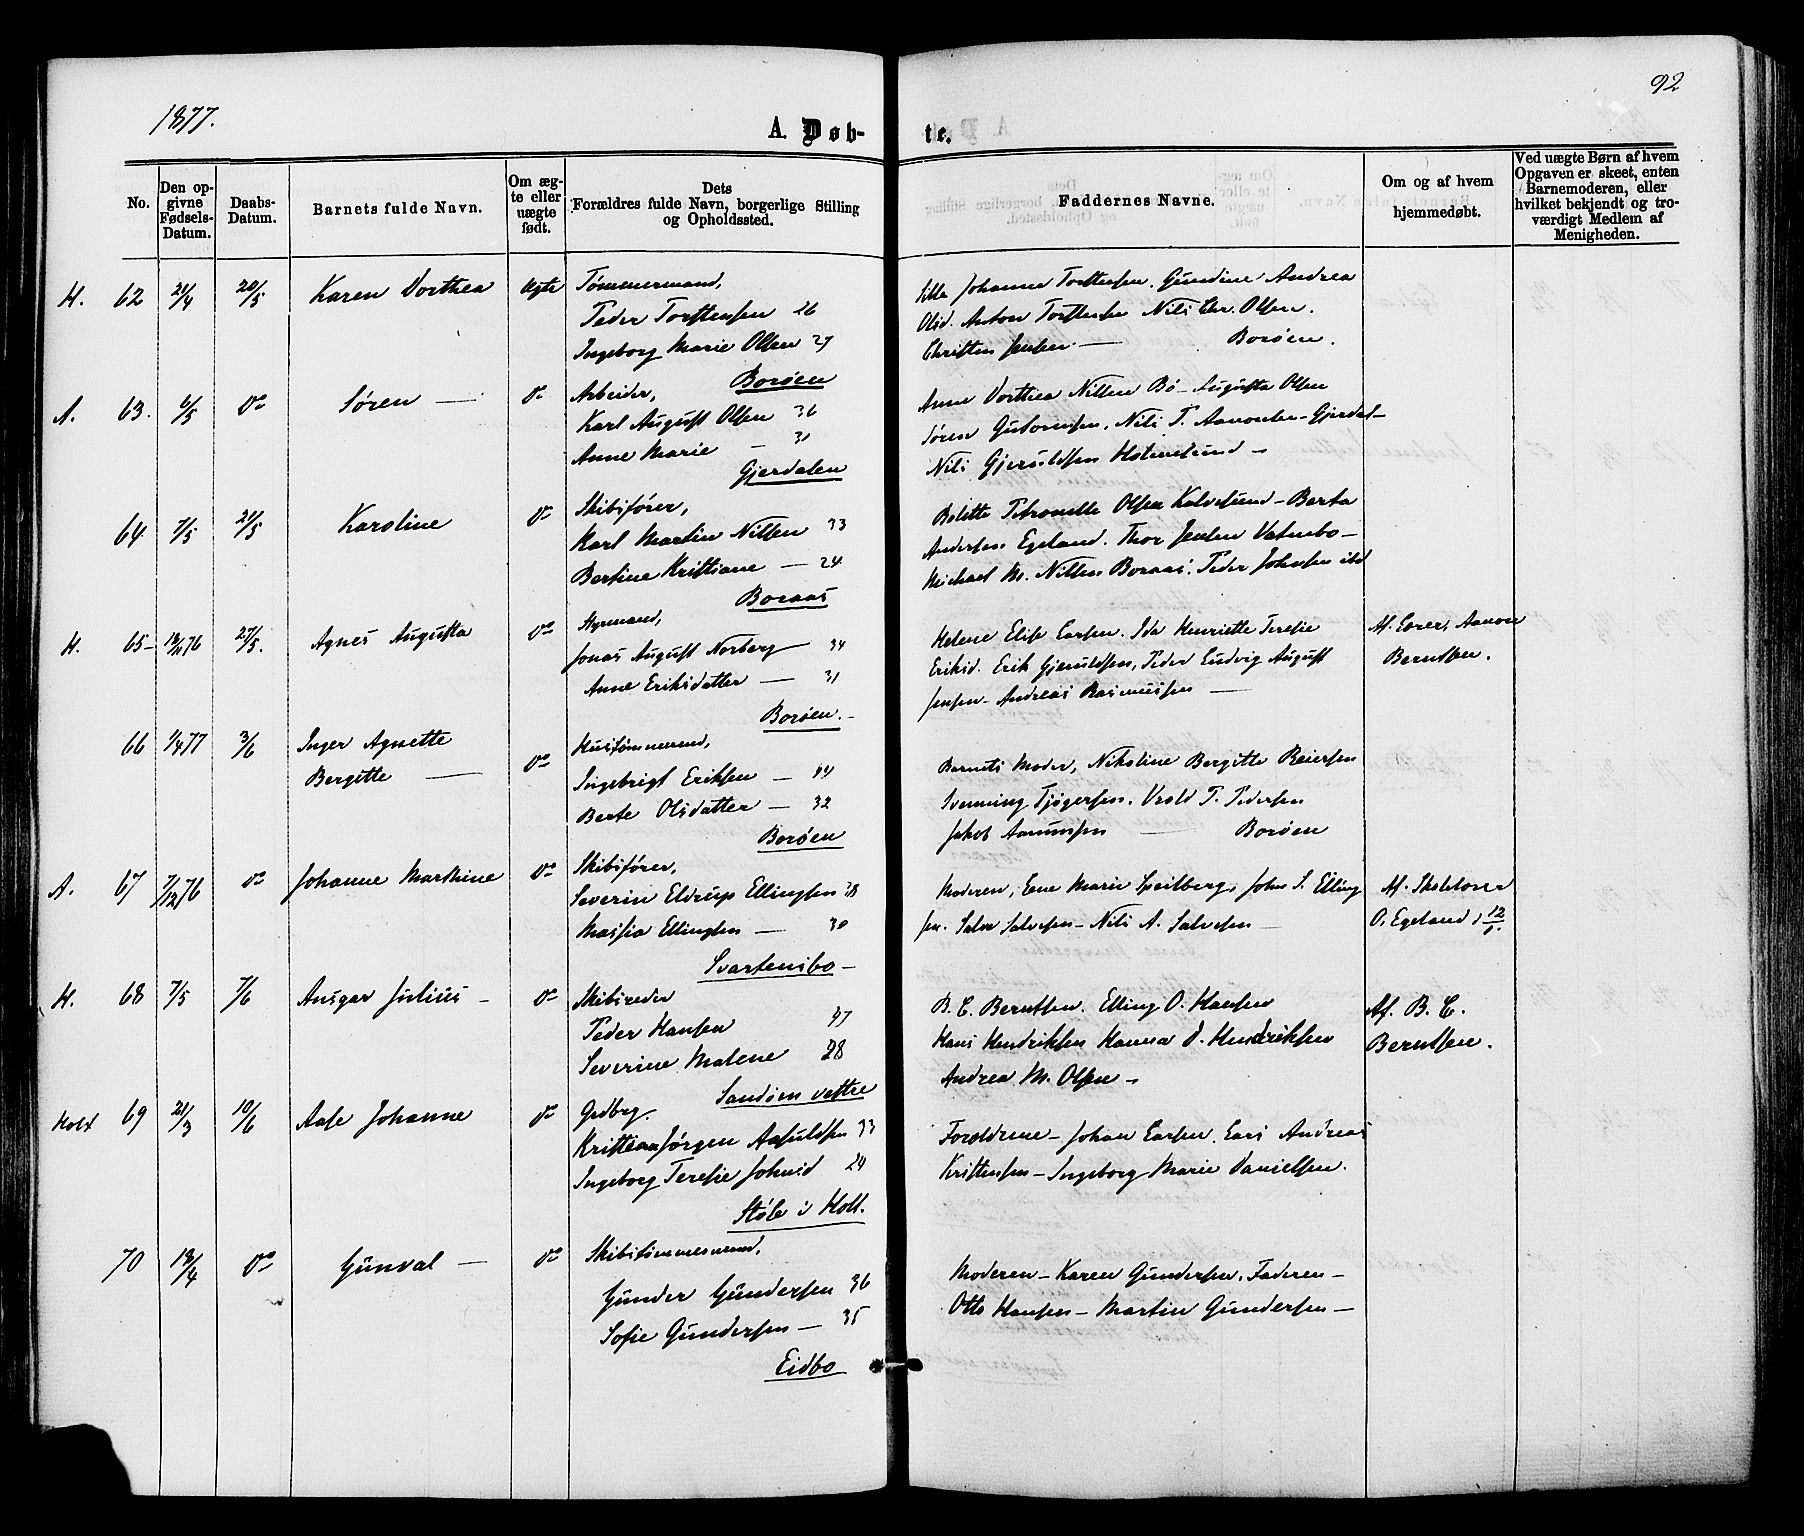 1877.
92
A. Døb-
te.
No.
Den op-
givne
Fødsels-
Datum.
Daabs-
Datum.
Barnets fulde Navn.
Om æg-
te eller
uægte
født.
Dets
Forældres fulde Navn, borgerlige Stilling
og Opholdssted.
Faddernes Navne.
Om og af hvem
hjemmedøbt.
Ved uægte Børn af hvem
Opgaven er skeet, enten
Barnemoderen, eller
hvilket bekjendt og tro-
værdigt Medlem af
Menigheden.
H. 62 21/4 20/5 Karen Dorthea Ægte
Tømmermand,
Peder Torstensen 26
Ingeborg Marie Olsen 27
Borøen
Johanne Torstensen. Gundine Andrea
Olsd. Anton Torstensen Nils Chr. Olsen.
Christen Jensen. — Borøen.
A. 63. 6/5 Do Søren — Do
Arbeider,
Karl August Olsen 36
Anne Marie — 31
Gjerdalen
Anne Dorthea Nilsen Bø — Augusta Olsen
Søren Gutormsen, Nils T. Aanonsen — Gjerdal —
Nils Gjeruldsen Holmesund —
64 7/5 21/5 Karoline Do
Skibsfører,
Karl Martin Nilsen 33
Bertine Kristiane — 24
Boraas
Bolette Petronelle Olsen Kalvesund — Berta
Andersen Egeland. Thor Jensen Vatnebo —
Michael M. Nilsen Boraas. Peder Johnsen ibd
H. 65 — 18/11 76 27/5. Agnes Augusta Do
Styrmand,
Jonas August Norberg — 34
Anne Eriksdatter — 31
Borøen. —
Helene Elise Larsen. Ida Henriette Terese
Eriksd. Erik Gjeruldsen, Peder Ludvig August
Jensen — Andreas Rasmussen —
Af Lærer, Aanon
Berntsen.
66 1/4 77 3/6 Inger Agnette
Bergitte — Do
Hustømmermd,
Ingebrigt Eriksen — 44
Berte Olsdatter — 32
Borøen
Barnets Moder, Nikoline Bergitte Reiersen
Svenning Tjøgersen, Vrold T. Pedersen
Jakob Aanunsen — Borøen
A. 67 7/12 76 Do Johanne Marthine Do
Skibsfører,
Severin Eldrup Ellingsen 38
Massia Ellingsen — 30
Svartensbo —
Moderen, Lene Marie Speilberg, John S. Elling
sen. Salve Salvesen — Nils A. Salvesen —
Af Skolelærer
O. Egeland, 12/1.
H. 68 7/5 7/6 Ansgar Julius — Do
Skibsreder
Peder Hansen 47
Severine Malene 38
Sandøen vestre
B. C. Berntsen. Elling O. Hansen
Hans Hendriksen Hanna D. Hendriksen
Andrea M. Olsen —
Af. B. C.
Berntsen.
Holt 69 21/3 10/6 Aase Johanne Do
Gdbrg.
Kristian Jørgen Aasuldsen 33
Ingeborg Teresie Johnsd 24
Støle i Holt.
Forældrene — Johan Larsen. Lars Andreas
Kristensen — Ingeborg Marie Danielsen.
70 18/4 Do Günval — Do
Skibstømmermand,
Gunder Gundersen 36
Sofie Gundersen — 35
Eidbo
Moderen — Karen Gundersen. Faderen —
Otto Hansen — Martin Gundersen —